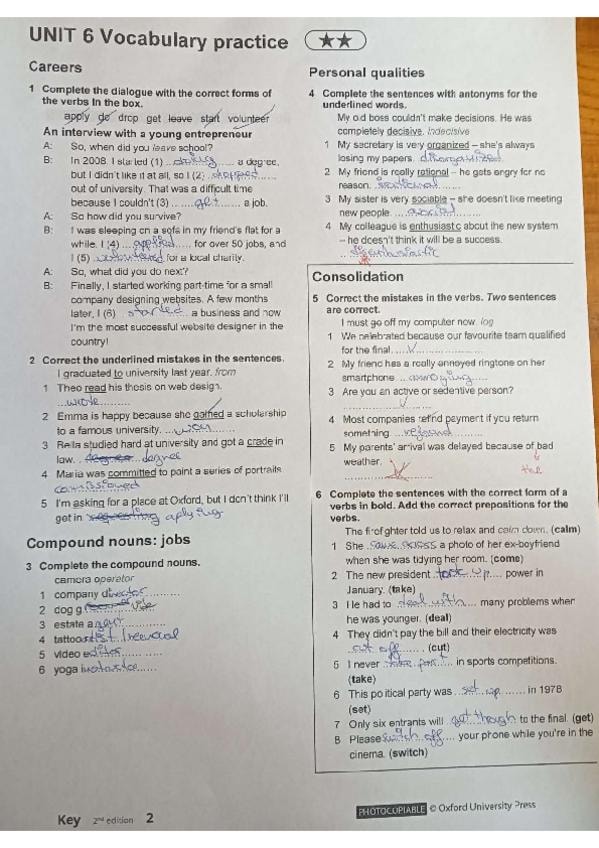 UNIT 6 Vocabulary practice ★★
Careers
1 Complete the dialogue with the correct forms of
the verbs in the box.
apply do drop get leave start volunteer
An interview with a young entrepreneur
A: So, when did you leave school?
B: In 2008. I started (1) ... doing ... a degree,
but I didn't like it at all, so I (2) ... dropped ...
out of university. That was a difficult time
because I couldn't (3) ... get ... a job.
A: So how did you survive?
B: I was sleeping on a sofa in my friend's flat for a
while. I (4) ... applied ... for over 50 jobs, and
I (5) ... volunteered for a local charity.
A: So, what did you do next?
B: Finally, I started working part-time for a small
company designing websites. A few months
later, I (6) ... started ... a business and now
I'm the most successful website designer in the
country!
2 Correct the underlined mistakes in the sentences.
I graduated to university last year. from
1 Theo read his thesis on web design.
... wrote ...
2 Emma is happy because she gained a scholarship
to a famous university. ... won ...
3 Bella studied hard at university and got a grade in
law. degree
4 Maria was committed to paint a series of portraits.
5 I'm asking for a place at Oxford, but I don't think I'll
get in aplying
Compound nouns: jobs
3 Complete the compound nouns.
camera operator
1 company director
2 dog g uide
3 estate agent
4 tattoo
5 video editor
6 yoga
Personal qualities
4 Complete the sentences with antonyms for the
underlined words.
My old boss couldn't make decisions. He was
completely decisive. indecisive
1 My secretary is very organized – she's always
losing my papers. disorganized
2 My friend is really rational – he gets angry for no
reason.
3 My sister is very sociable – she doesn't like meeting
new people.
4 My colleague is enthusiastic about the new system
– he doesn't think it will be a success.
Consolidation
5 Correct the mistakes in the verbs. Two sentences
are correct.
I must go off my computer now. log
1 We celebrated because our favourite team qualified
for the final. ... V ...
2 My friend has a really annoyed ringtone on her
smartphone ... annoying ...
3 Are you an active or sedentive person?
V
4 Most companies refind payment if you return
something. ... refound ...
5 My parents' arrival was delayed because of bad
weather. the
6 Complete the sentences with the correct form of a
verbs in bold. Add the correct prepositions for the
verbs.
The firefighter told us to relax and calm down. (calm)
1 She came across a photo of her ex-boyfriend
when she was tidying her room. (come)
2 The new president took up power in
January. (take)
3 He had to deal with many problems when
he was younger. (deal)
4 They didn't pay the bill and their electricity was
cut off. (cut)
5 I never take part in sports competitions.
(take)
6 This political party was set up in 1978
(set)
7 Only six entrants will get though to the final. (get)
8 Please switch off your phone while you're in the
cinema. (switch)
Key 2nd edition 2
PHOTOCOPIABLE © Oxford University Press